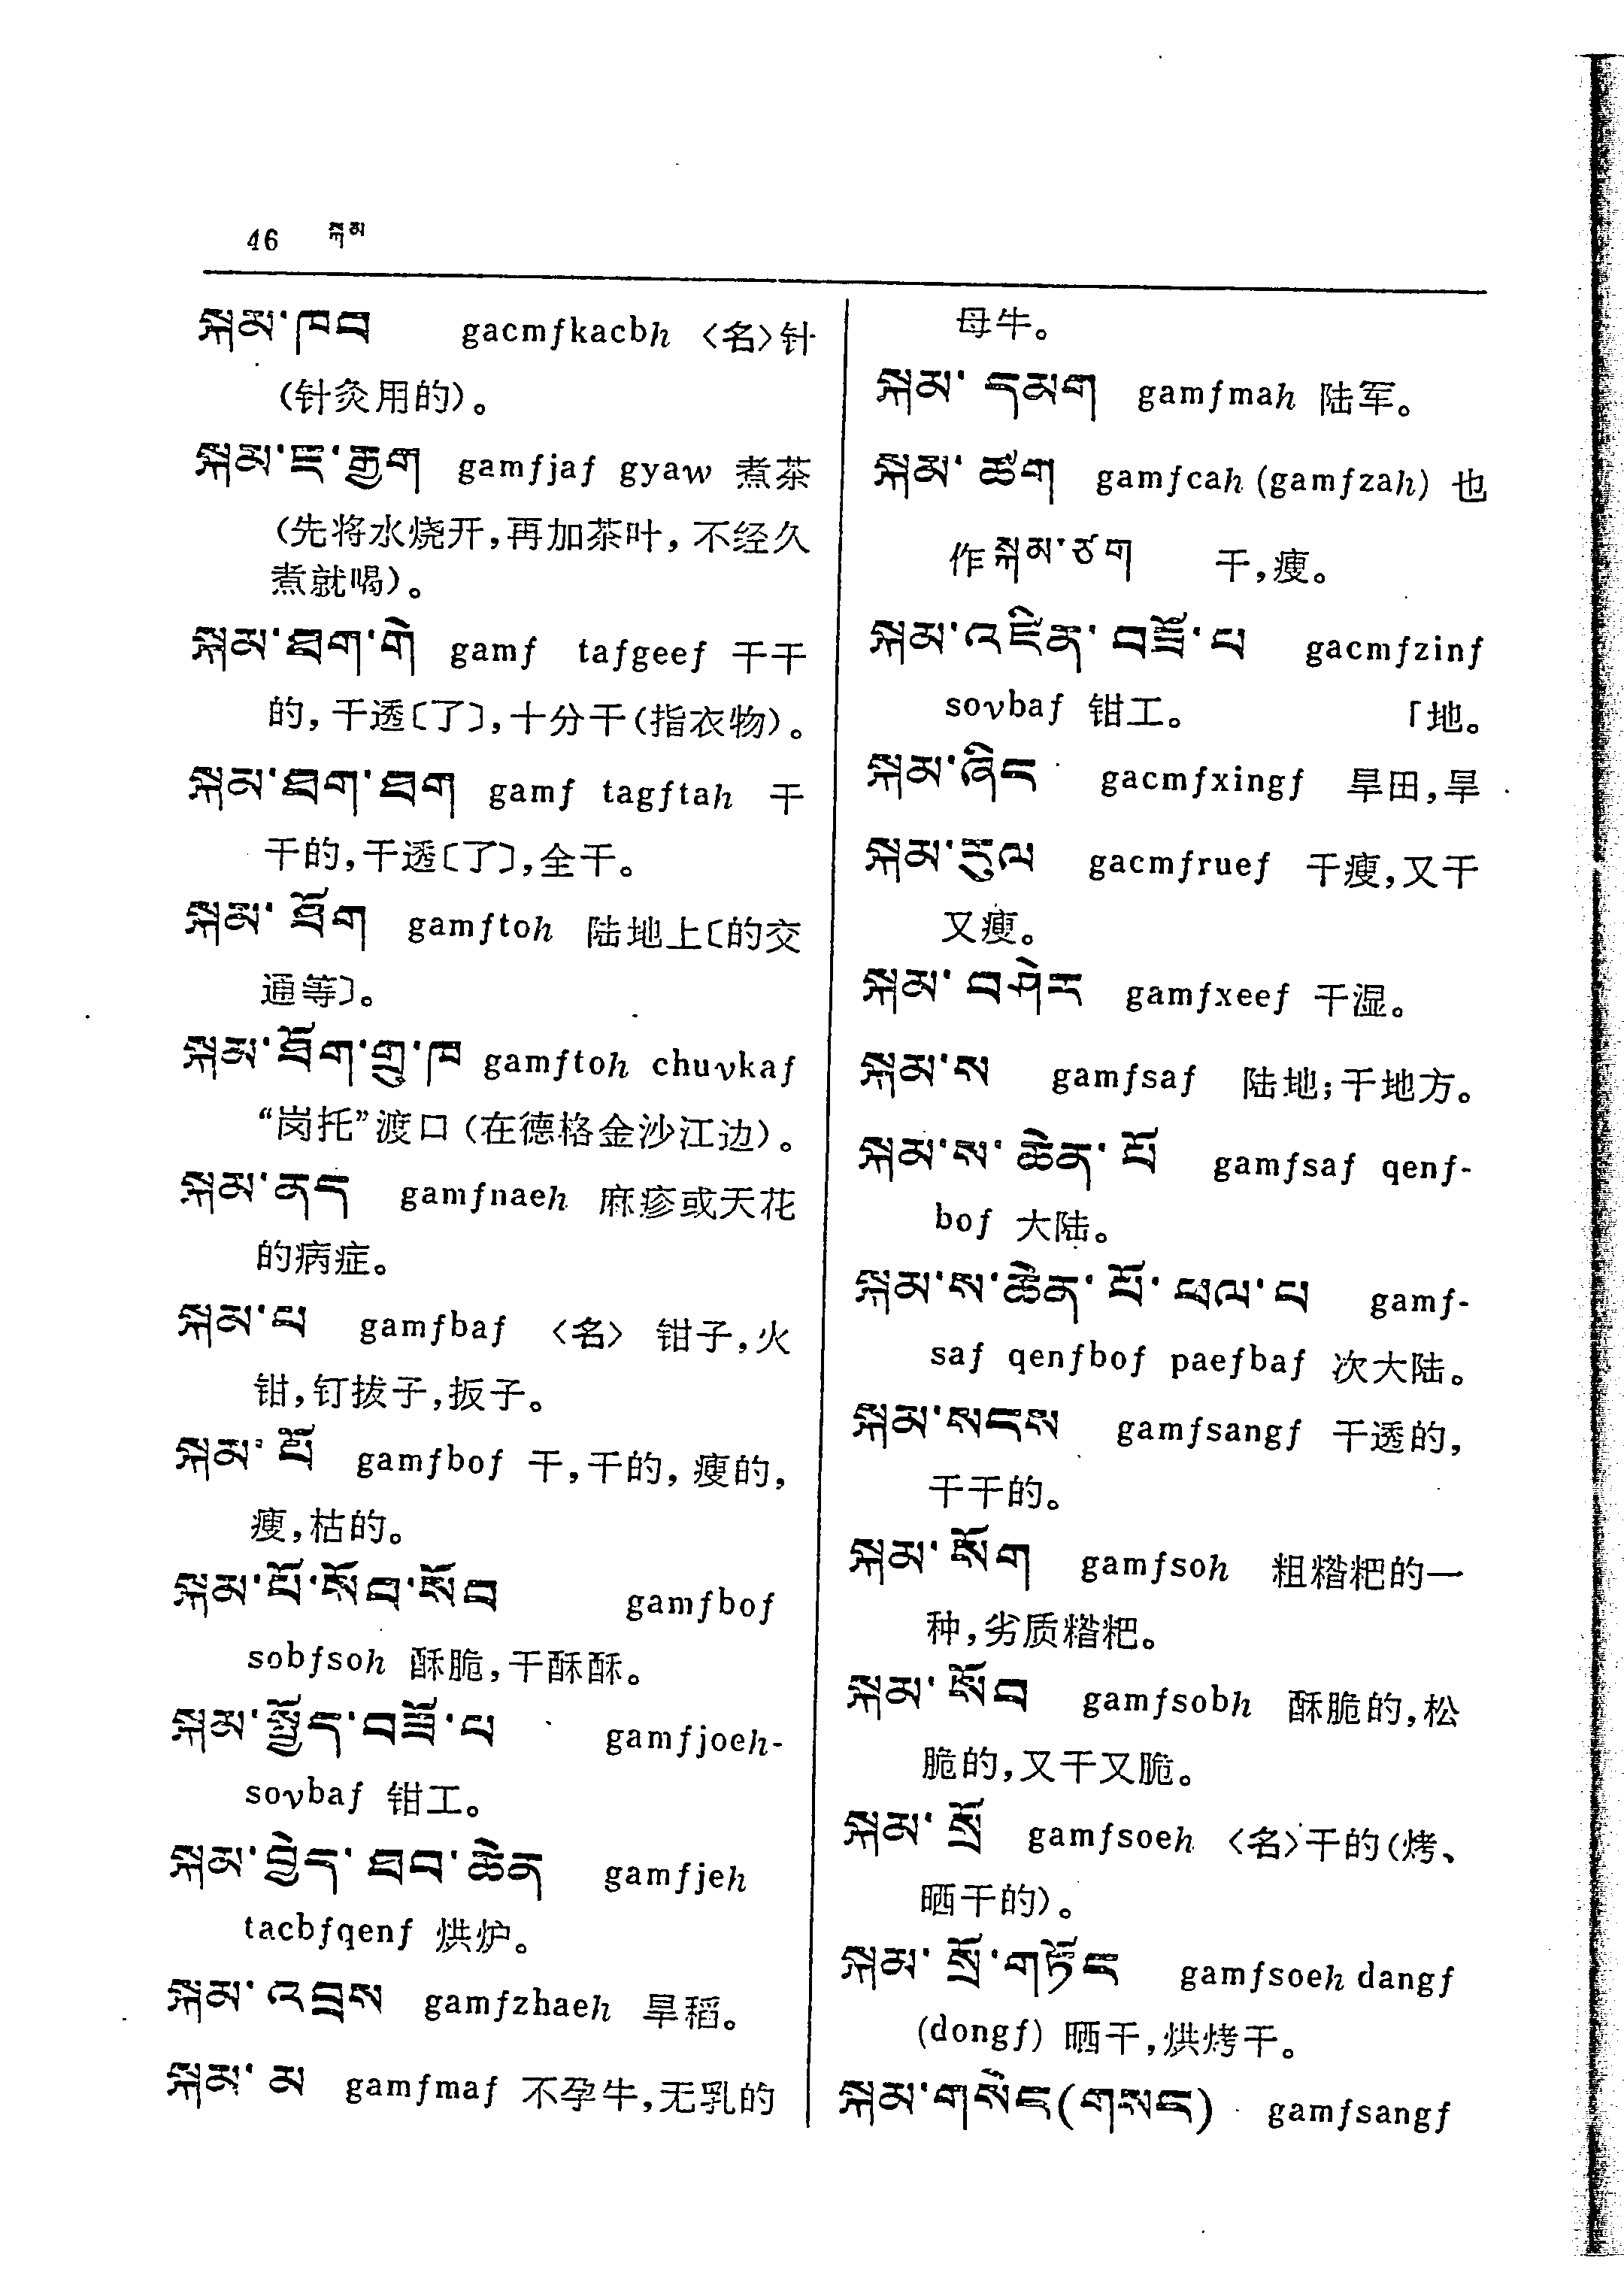 46 སྐམ
སྐམ་ཁབ gacmfkacbh 〈名〉针
(针灸用的)。
སྐམ་ཇ་རྒྱག gamfjaf gyaw 煮茶
(先将水烧开,再加茶叶,不经久
煮就喝)。
སྐམ་ཐག་གེ gamf tafgeef 干干
的,干透〔了〕,十分干(指衣物)。
སྐམ་ཐག་ཐག gamf tagftah 干
干的,干透〔了〕,全干。
སྐམ་ཐོག gamftoh 陆地上〔的交
通等〕。
སྐམ་ཐོག་གྲུ་ཁ gamftoh chuvkaf
“岗托”渡口(在德格金沙江边)。
སྐམ་ནད gamfnaeh 麻疹或天花
的病症。
སྐམ་པ gamfbaf 〈名〉 钳子,火
钳,钉拔子,扳子。
སྐམ་པོ gamfbof 干,干的,瘦的,
瘦,枯的。
སྐམ་པོ་སོབ་སོབ gamfbof
sobfsoh 酥脆,干酥酥。
སྐམ་སྤྱོད་བཟོ་པ gamfjoeh-
sovbaf 钳工。
སྐམ་བྱེད་ཐབ་ཆེན gamfjeh
tacbfqenf 烘炉。
སྐམ་འབྲས gamfzhaeh 旱稻。
སྐམ་མ gamfmaf 不孕牛,无乳的
母牛。
སྐམ་དམག gamfmah 陆军。
སྐམ་ཚག gamfcah (gamfzah) 也
作སྐམ་ཙག 干,瘦。
སྐམ་འཛིན་བཟོ་པ gacmfzinf
sovbaf 钳工。 「地。
སྐམ་ཞིང gacmfxingf 旱田,旱
སྐམ་རུལ gacmfruef 干瘦,又干
又瘦。
སྐམ་བཤེར gamfxeef 干湿。
སྐམ་ས gamfsaf 陆地;干地方。
སྐམ་ས་ཆེན་པོ gamfsaf qenf-
bof 大陆。
སྐམ་ས་ཆེན་པོ་ཕལ་པ gamf-
saf qenfbof paefbaf 次大陆。
སྐམ་སངས gamfsangf 干透的,
干干的。
སྐམ་སོག gamfsoh 粗糌粑的一
种,劣质糌粑。
སྐམ་སོབ gamfsobh 酥脆的,松
脆的,又干又脆。
སྐམ་སྲོ gamfsoeh 〈名〉干的(烤、
晒干的)。
སྐམ་སྲོ་གཏོང gamfsoeh dangf
(dongf) 晒干,烘烤干。
སྐམ་གསེང(གསང) gamfsangf